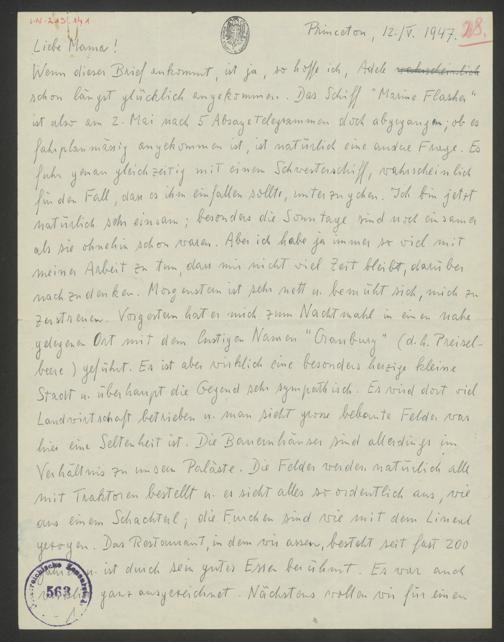 I.N. 213.141
Princeton, 12./V. 1947.
28.
Liebe Mama!
Wenn dieser Brief ankommt, ist ja, so hoffe ich, Adele wahrscheinlich
schon längst glücklich angekommen. Das Schiff "Marine Flasher"
ist also am 2. Mai nach 5 Absagetelegrammen doch abgegangen; ob es
fahrplanmässig angekommen ist, ist natürlich eine andre Frage. Es
fuhr genau gleichzeitig mit einem Schwesterschiff, wahrscheinlich
für den Fall, dass es ihm einfallen sollte, unterzugehen. Ich bin jetzt
natürlich sehr einsam; besonders die Sonntage sind noch einsamer
als sie ohnehin schon waren. Aber ich habe ja immer so viel mit
meiner Arbeit zu tun, dass mir nicht viel Zeit bleibt, darüber
nachzudenken. Morgenstern ist sehr nett u. bemüht sich, mich zu
zerstreuen. Vorgestern hat er mich zum Nachtmahl in einen nahe
gelegenen Ort mit dem lustigen Namen "Cranbury" (d.h. Preisel-
beere) geführt. Es ist aber wirklich eine besonders herzige kleine
Stadt u. überhaupt die Gegend sehr sympathisch. Es wird dort viel
Landwirtschaft betrieben u. man sieht grosse bebaute Felder was
hier eine Seltenheit ist. Die Bauernhäuser sind allerdings im
Verhältnis zu unsern Paläste. Die Felder werden natürlich alle
mit Traktoren bestellt u. es sieht alles so ordentlich aus, wie
aus einem Schachterl; die Furchen sind wie mit dem Lineal
gezogen. Das Restaurant, in dem wir assen, besteht seit fast 200
Jahren u. ist durch sein gutes Essen berühmt. Es war auch
ganz ausgezeichnet. Nächstens wollen wir für einen
Österreichische Zensurstelle
563